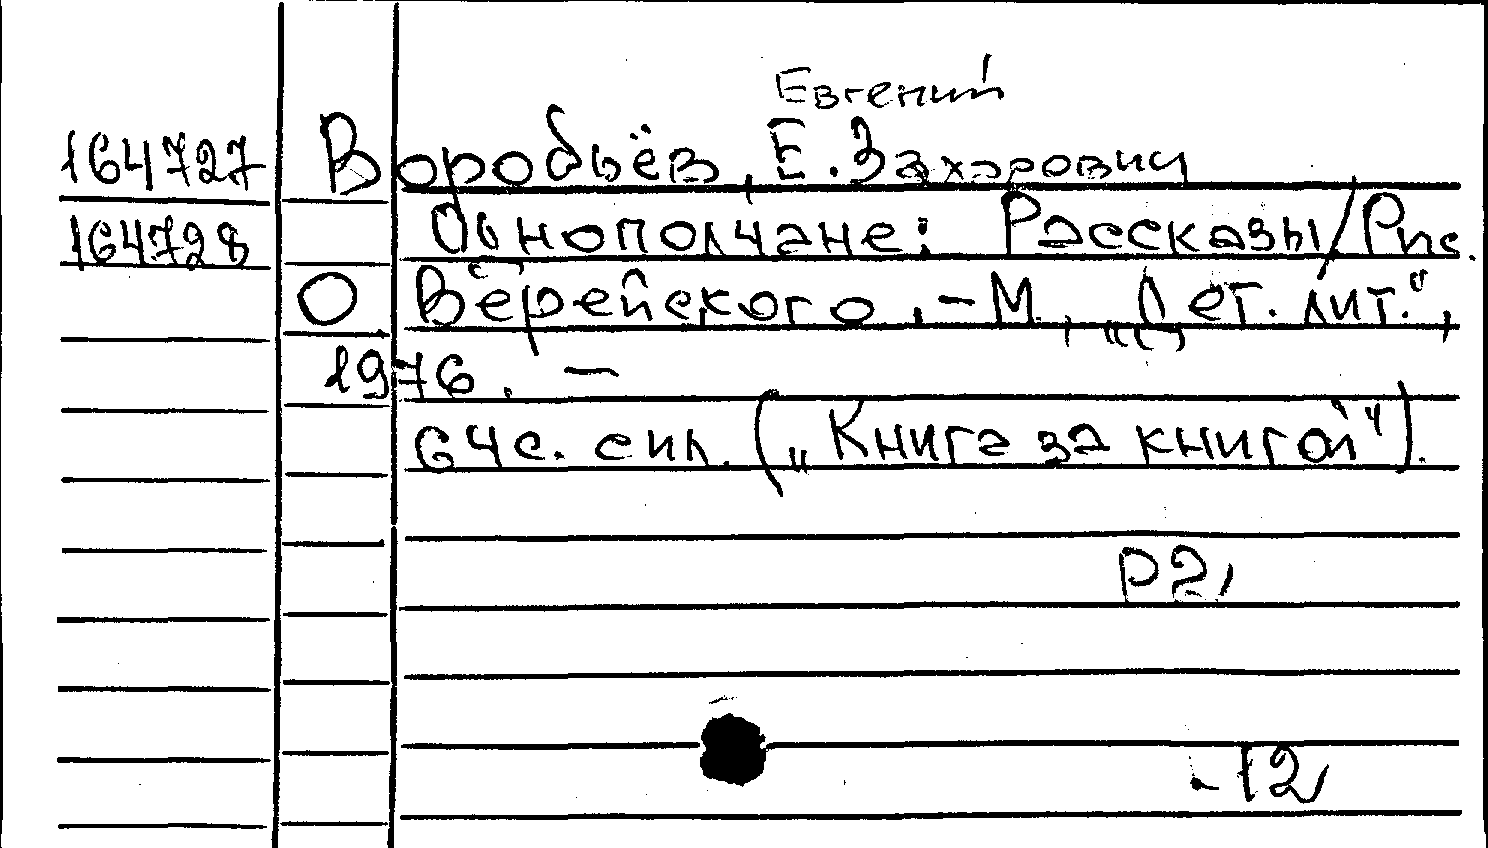 Евгений
164727 Воробьёв, Е. Захарович
164728 Однополчане: Рассказы/Рис.
О Верейского. - М., „Дет. лит.",
1976. —
64с. с ил. („Книга за книгой").
Р2,
-12